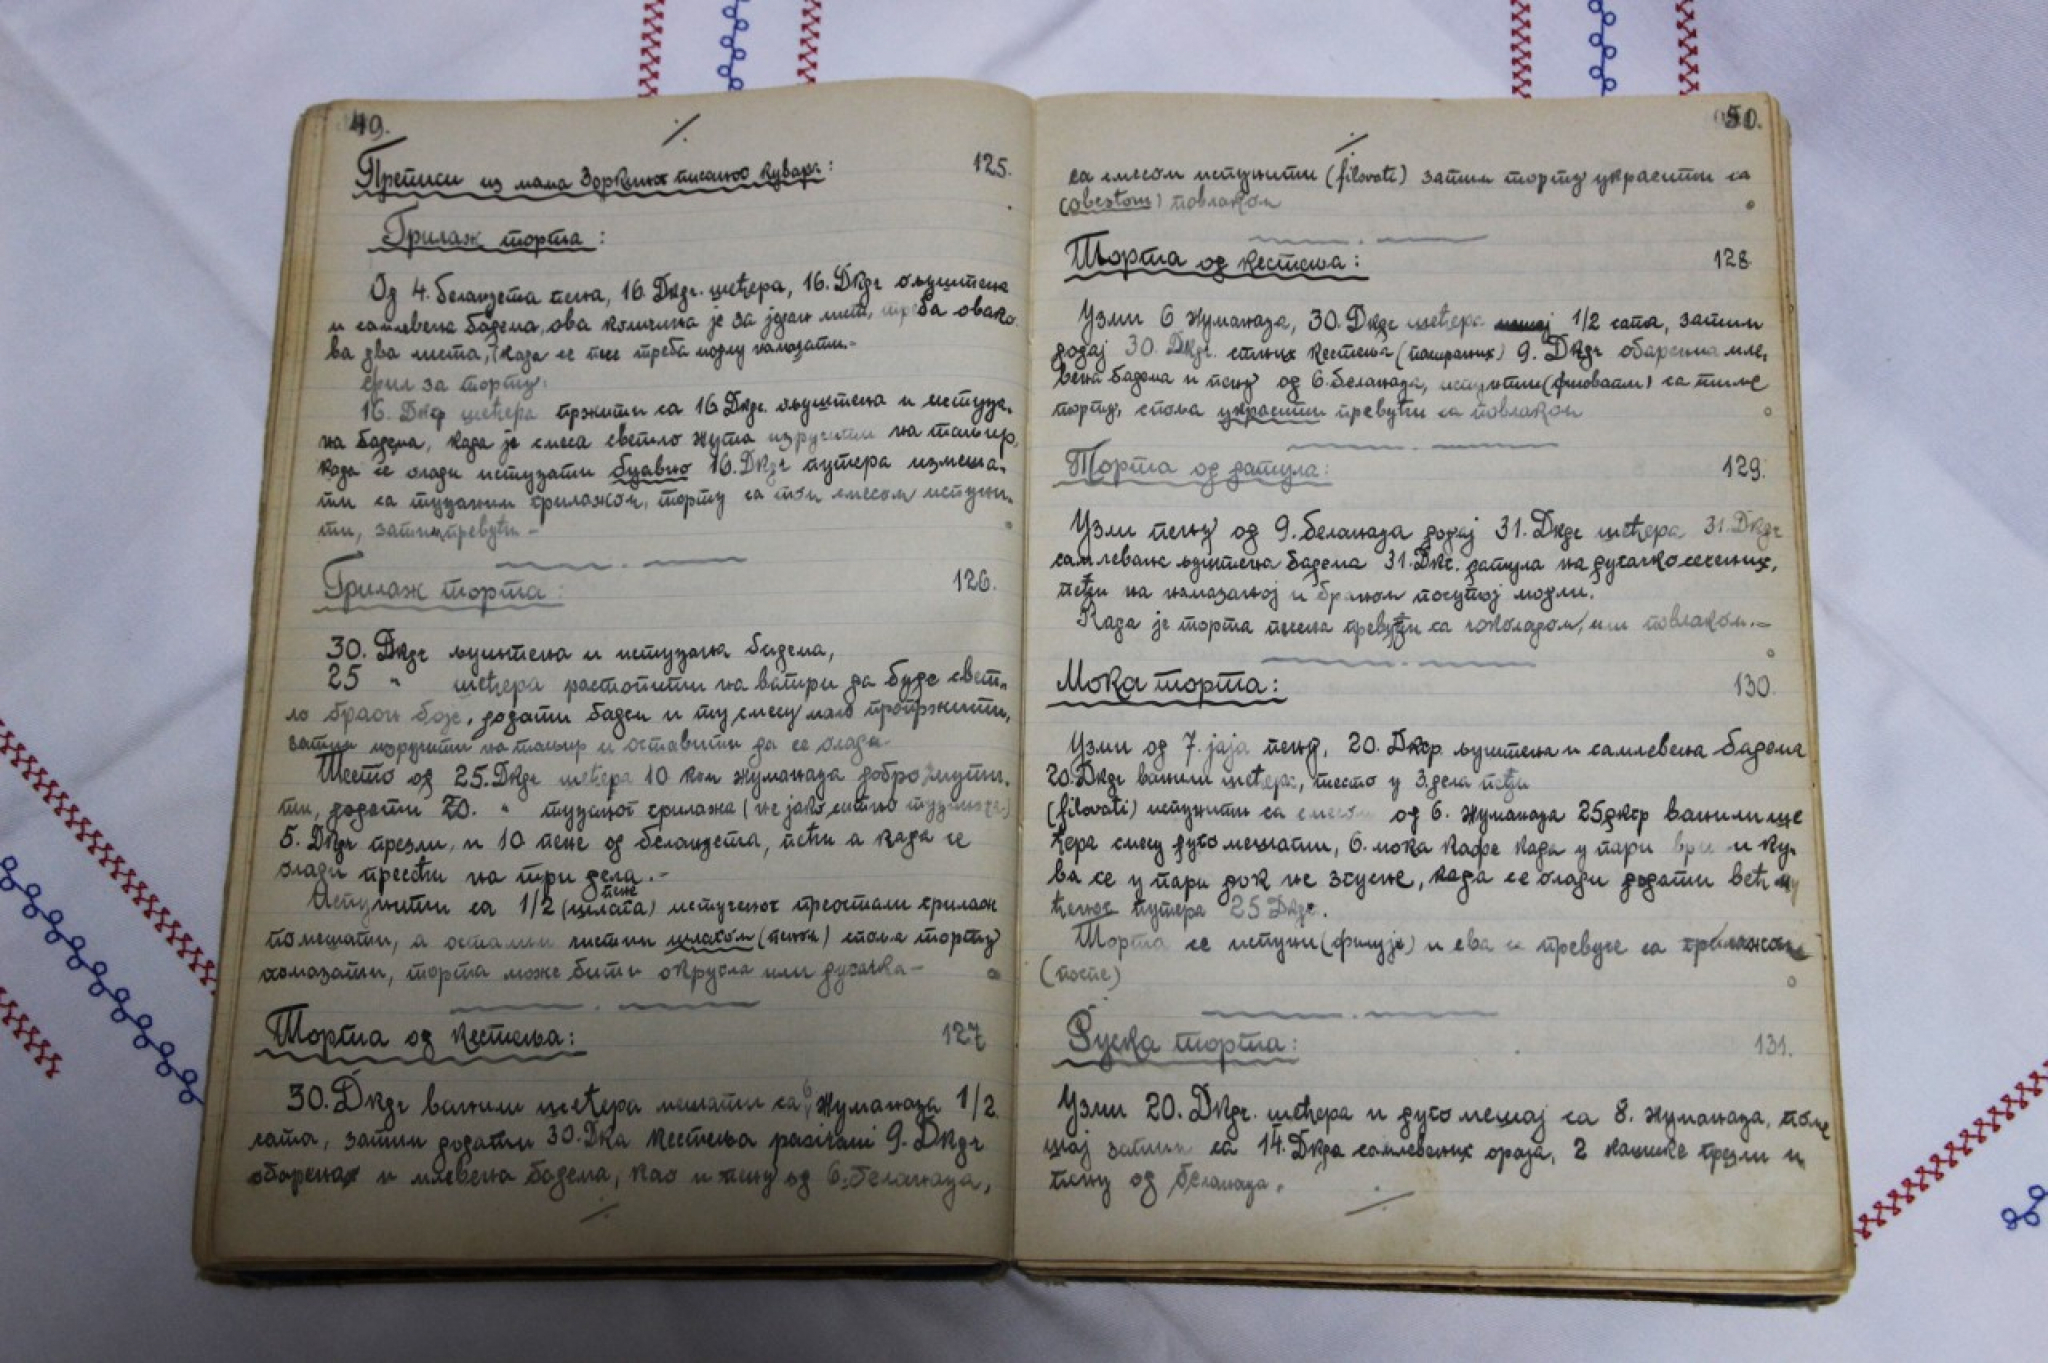 49.
Преписи из мама Зоркиног писаног кувара:
125.
Грилаж торта:
Од 4. беланцета пена, 16. Dкгr. шећера, 16. Dкгr ољуштена
и самлевена бадема, ова количина је за један лист, треба овако
ва два листа, када се пече треба модлу намазати.-
Фил за торту:
16. Dкгр шећера пржити са 16 Dкгr. ољуштена и истуца-
на бадема, када је смеса светло жута изручити на тањир,
када се олади истуцати 16. Dкгr путера измеша-
ти са туцаним грилажом, торту са том смесом испуни-
ти, затим превући -
Грилаж торта:
126.
30. Dкгr љуштена и истуцана бадема,
25 " шећера растопити на ватри да буде свет-
ло браон боје, додати бадем и ту смесу мало пропржити,
затим изручити на тањир и оставити да се олади-
Тесто од 25. Dкгr шећера 10 ком жуманаца добро мути-
ти, додати 20. " туцаног грилажа (не јако ситно туцаног)
5. Dкгr презли, и 10 пене од беланцета, пећи а када се
олади пресећи на три дела.-
пене
Испунити са 1/2 (шлага) истученог преостали грилаж
помешати, а осталим чистим шлагом (пеном) споља торту
намазати, торта може бити округла или дугачка-
Торта од кестења:
127
6
30. Dкгr ванили шећера мешати са жуманаца 1/2.
сата, затим додати 30. Dка кестења pasirani 9. Dкгr
обарена и млевена бадема, као и пену од 6. беланаца,
50.
са смесом испунити (filovati) затим торту украсити са
повлаком
Торта од кестења:
128.
Узми 6 жуманаца, 30. Dкгr шећера 1/2 сата, затим
додај 30. Dкгr. кестења (пасираних) 9. Dкгr обарена мле-
вена бадема и пену од 6. беланаца, испунити (филовати) са тиме
торту, споља украсити превући са повлаком
Торта од датула:
129.
Узми пену од 9. беланаца додај 31. Dкгr шећера 31. Dкгr
самлевене љуштена бадема 31. Dкг. датула на дугачко сечених,
пећи на намазаној и браном посутој модли.
Када је торта печена превући са чоколадом, или повлаком.-
Мока торта:
130.
Узми од 7. јаја пену, 20. Dкгр. љуштена и самлевена бадема
20. Dкгr ванили шећера, тесто у 3. дела пећи
(filovati) испунити са смесом од 6. жуманаца 25 дкгр ванили ше
ћера смесу дуго мешати, 6. мока кафе када у пари ври и ку-
ва се у пари док не згусне, када се олади додати већ
путера 25 Dкгr.
Торта се испуни (филује) и сва се превуче са грилажом
(поспе)
Руска торта:
131.
Узми 20. Dкгr. шећера и дуго мешај са 8. жуманаца, поме
шај затим са 14. Dкгр самлевених ораја, 2 кашике презли и
пену од беланаца.